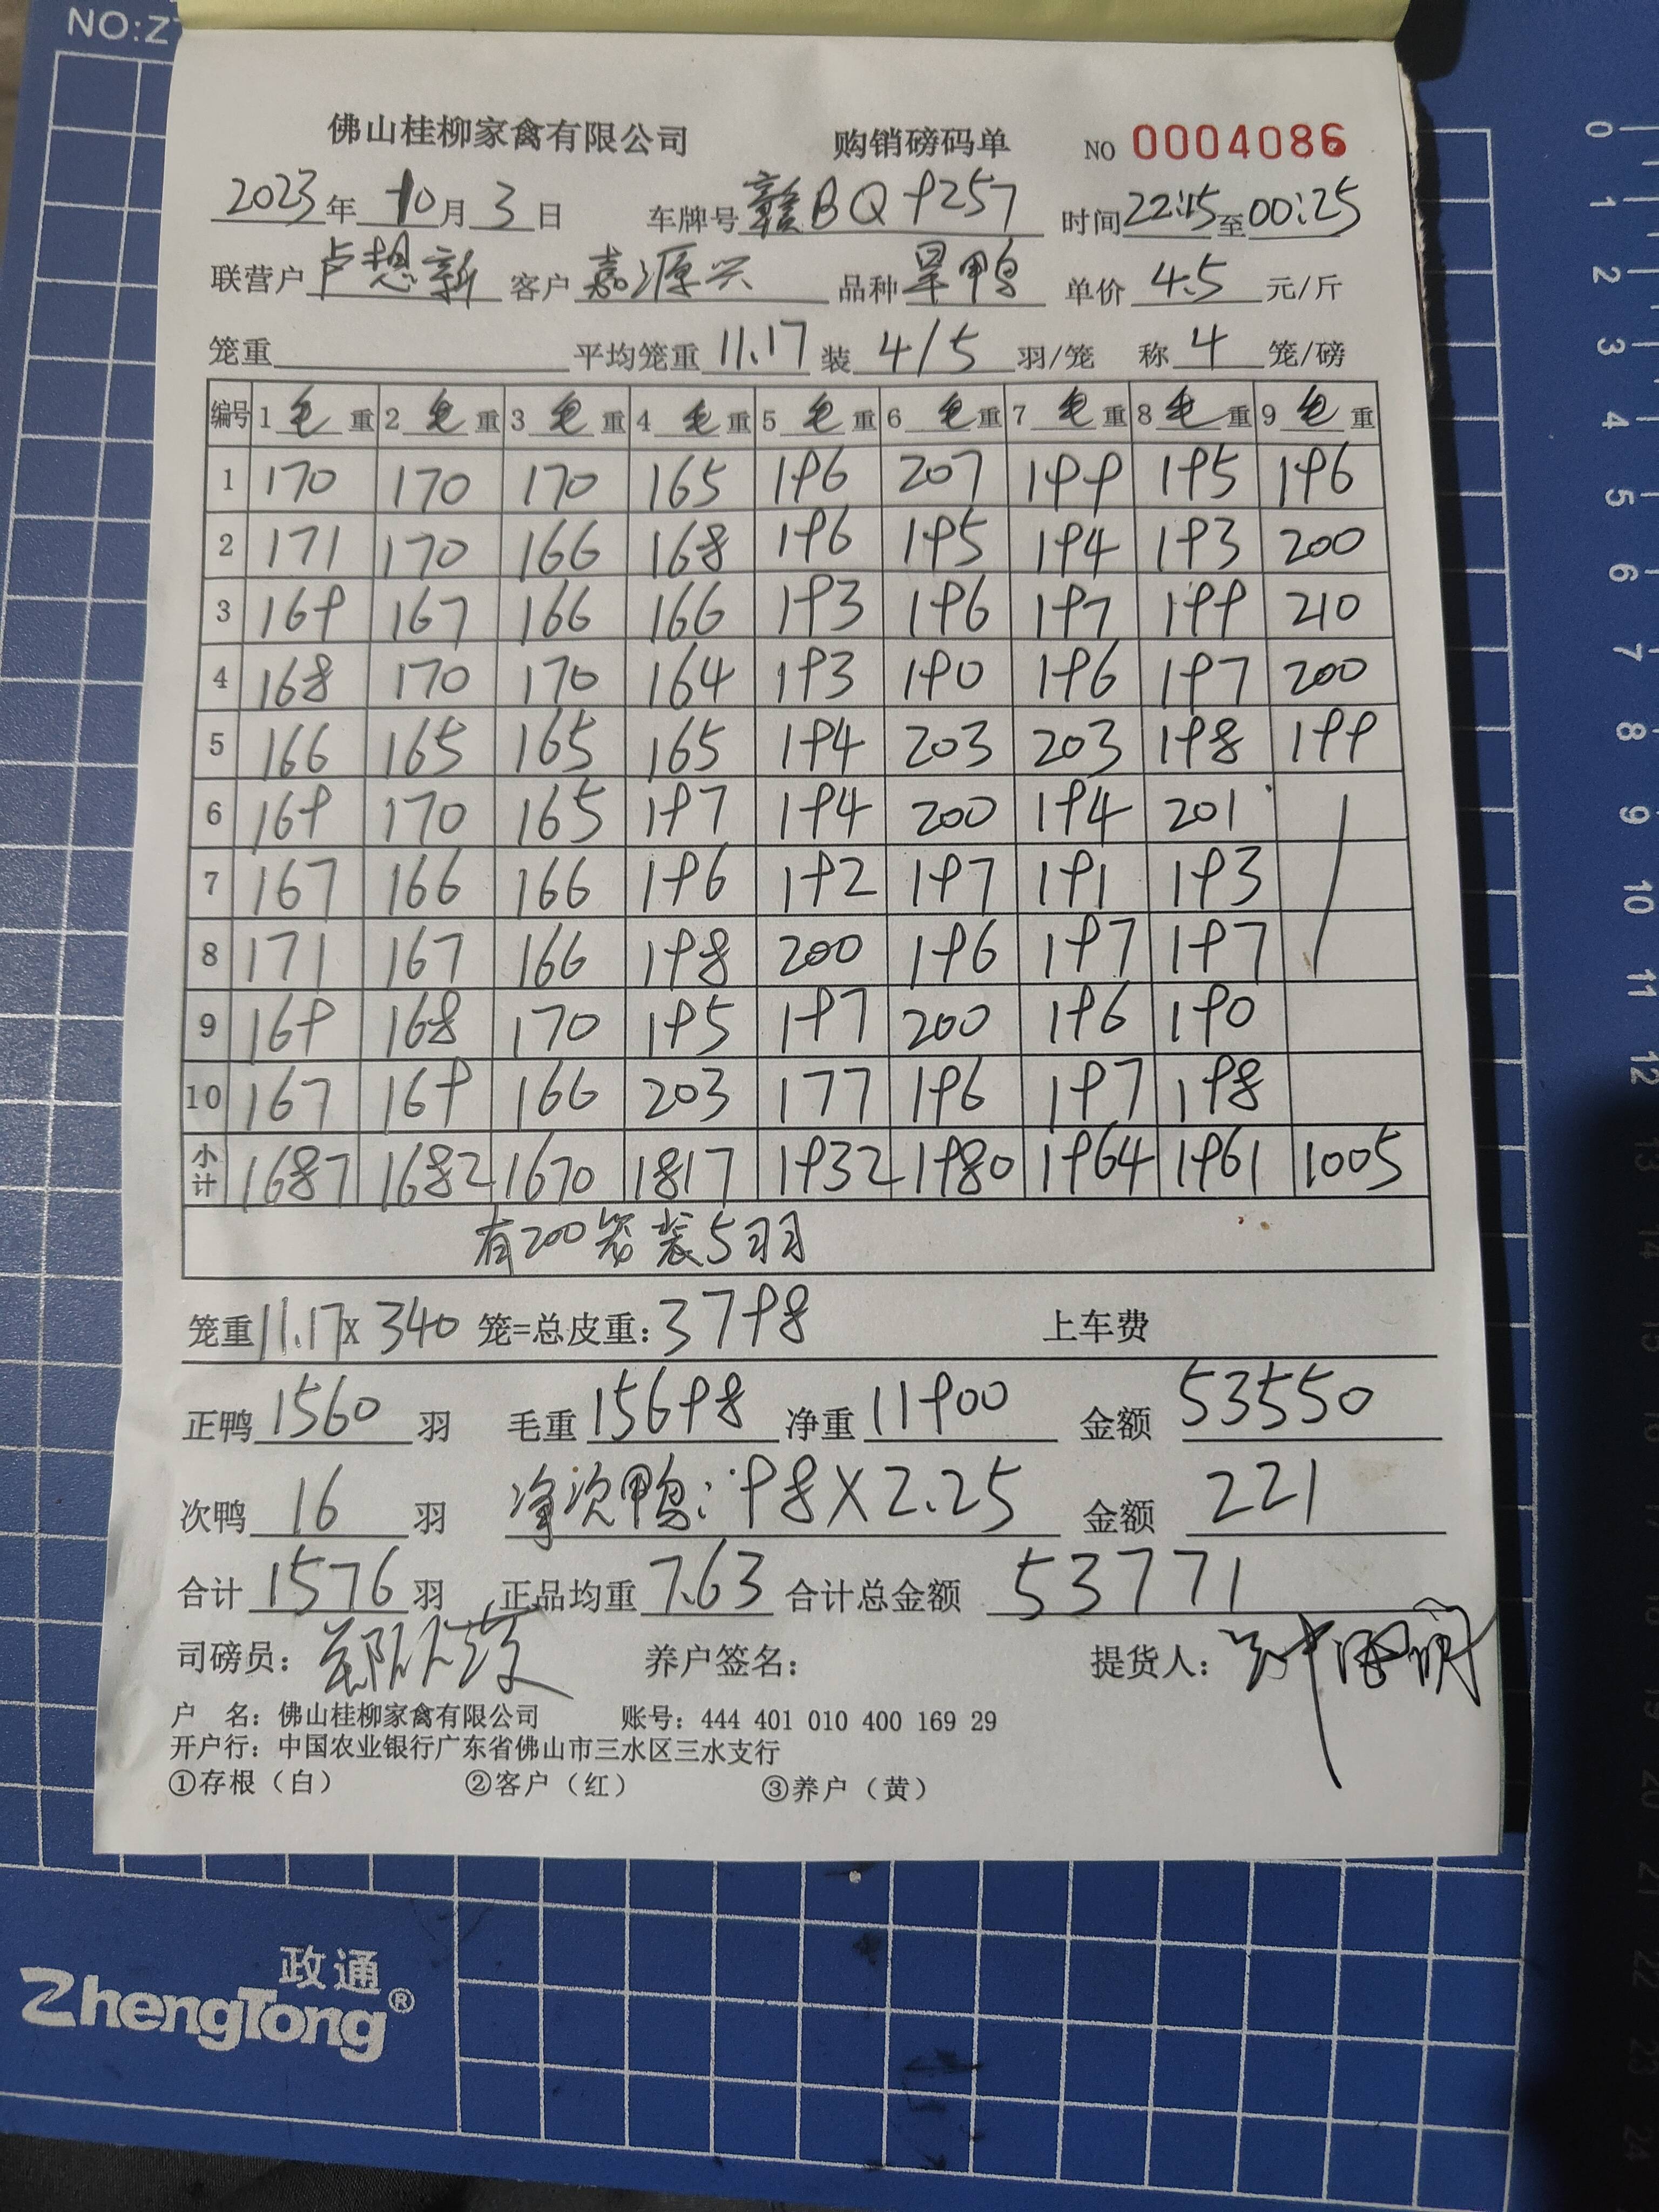 NO:Z
佛山桂柳家禽有限公司 购销磅码单 NO 0004086
2023年 10月 3日 车牌号 赣BQ9257 时间 22:15 至 00:25
联营户 卢想新 客户 嘉源兴 品种 旱鸭 单价 4.5 元/斤
笼重 平均笼重 11.17 装 4/5 羽/笼 称 4 笼/磅
编号 1 毛 重 2 毛 重 3 毛 重 4 毛 重 5 毛 重 6 毛 重 7 毛 重 8 毛 重 9 毛 重
1 170 170 170 165 196 207 199 195 196
2 171 170 166 168 196 195 194 193 200
3 169 167 166 166 193 196 197 199 210
4 168 170 170 164 193 190 196 197 200
5 166 165 165 165 194 203 203 198 199
6 169 170 165 197 194 200 194 201
7 167 166 166 196 192 197 191 193
8 171 167 166 198 200 196 197 197
9 169 168 170 195 197 200 196 190
10 167 169 166 203 177 196 197 198
小计 1687 1682 1670 1817 1932 1980 1964 1961 1005
有200笼装5羽
笼重 11.17 X 340 笼=总皮重: 3798 上车费
正鸭 1560 羽 毛重 15698 净重 11900 金额 53550
次鸭 16 羽 净次鸭: 98 X 2.25 金额 221
合计 1576 羽 正品均重 7.63 合计总金额 53771
司磅员: 养户签名: 提货人:
户 名: 佛山桂柳家禽有限公司 账号: 444 401 010 400 169 29
开户行: 中国农业银行广东省佛山市三水区三水支行
①存根（白） ②客户（红） ③养户（黄）
政通
ZhengTong®
0
1
2
3
4
5
6
7
8
9
10
11
12
13
14
15
16
17
18
19
20
21
22
23
24